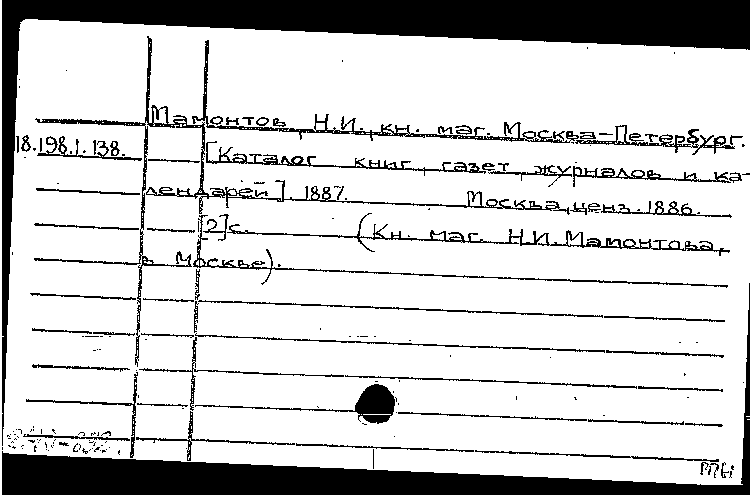 Мамонтов, Н.И., кн. маг. Москва-Петербург.
18.198.1.138. [Каталог книг, газет, журналов и ка-
лендарей]. 1887. Москва, ценз. 1886.
[2]с. (Кн. маг. Н.И. Мамонтова,
в Москве).